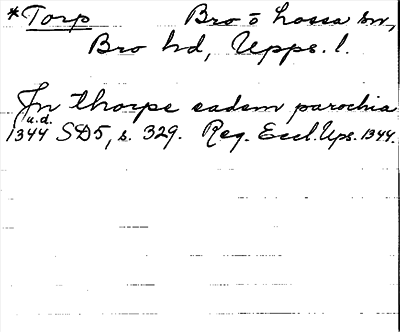 *Torp Bro o Lossa sn,
Bro hd, Upps. l.
In thorpe eadem parochia
u.d.
1344 SD5, s. 329. Reg. Eccl. Ups. 1344.